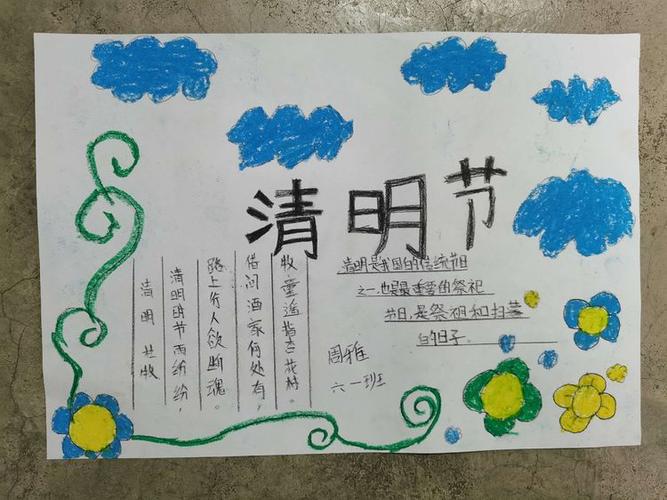 清明节
清明 杜牧
清明时节雨纷纷，
路上行人欲断魂。
借问酒家何处有，
牧童遥指杏花村。
清明是我国的传统节日
之一,也是最重要的祭祀
节日,是祭祖和扫墓
的日子。
周雅
六一班